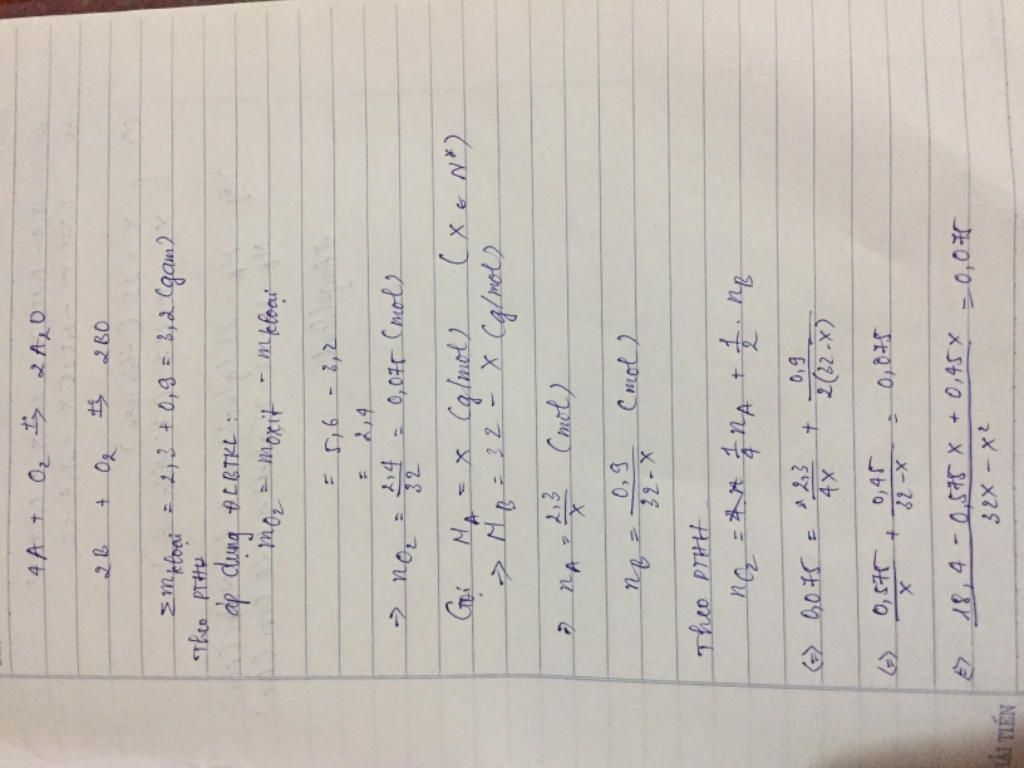 4A + O₂ t°→ 2A₂O
2B + O₂ t°→ 2BO
Σm kloại = 2,3 + 0,9 = 3,2 (gam)
Theo PTHH
áp dụng ĐLBTKL :
m O₂ = m oxit - m kloại
= 5,6 - 3,2
= 2,4
=> n O₂ = 2,4/32 = 0,075 (mol)
Gọi M_A = x (g/mol) (x ∈ N*)
=> M_B = 32 - x (g/mol)
=> n_A = 2,3/x (mol)
n_B = 0,9/(32-x) (mol)
Theo PTHH
n O₂ = 1/4 n_A + 1/2 . n_B
(=) 0,075 = 2,3/4x + 0,9/2(32-x)
(=) 0,575/x + 0,45/(32-x) = 0,075
(=) (18,4 - 0,575x + 0,45x)/(32x - x²) = 0,075
ẢI TIẾN